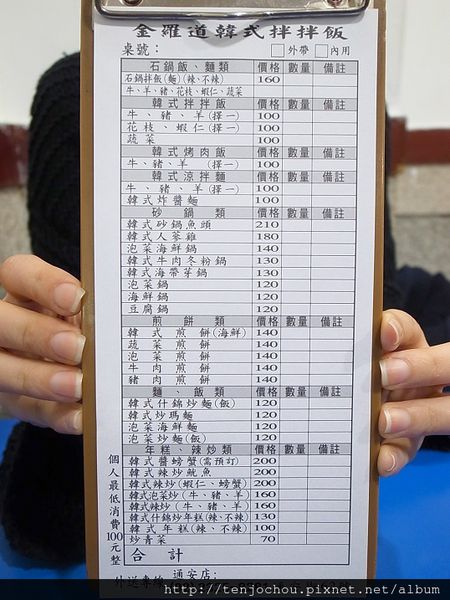 金羅道韓式拌拌飯
桌號： □外帶 □內用
石鍋飯、麵類 價格 數量 備註
石鍋拌飯(麵)(辣、不辣) 160
牛、羊、豬、花枝、蝦仁、蔬菜
韓式拌拌飯 價格 數量 備註
牛、豬、羊(擇一) 100
花枝、蝦仁(擇一) 100
蔬菜 100
韓式烤肉飯 價格 數量 備註
牛、豬、羊 (擇一) 100
韓式涼拌麵 價格 數量 備註
牛、豬、羊(擇一) 100
韓式炸醬麵 100
砂鍋類 價格 數量 備註
韓式砂鍋魚頭 210
韓式人蔘雞 180
泡菜海鮮鍋 140
韓式牛肉冬粉鍋 130
韓式海帶芽鍋 130
泡菜鍋 120
海鮮鍋 120
豆腐鍋 120
煎餅類 價格 數量 備註
韓式煎餅(海鮮) 140
蔬菜煎餅 140
泡菜煎餅 140
牛肉煎餅 140
豬肉煎餅 140
麵、飯類 價格 數量 備註
韓式什錦炒麵(飯) 120
韓式炒瑪麵 120
泡菜海鮮麵 120
泡菜炒麵(飯) 120
年糕、辣炒類 價格 數量 備註
韓式醬螃蟹(需預訂) 200
韓式辣炒魷魚 200
韓式辣炒(蝦仁、螃蟹) 200
韓式泡菜炒(牛、豬、羊) 160
韓式辣炒(牛、豬、羊) 160
韓式什錦炒年糕(辣、不辣) 130
韓式年糕(辣、不辣) 100
炒青菜 70
合計
個人最低消費100元整
通安店:
外送專線
http://tenjochou.pixnet.net/album